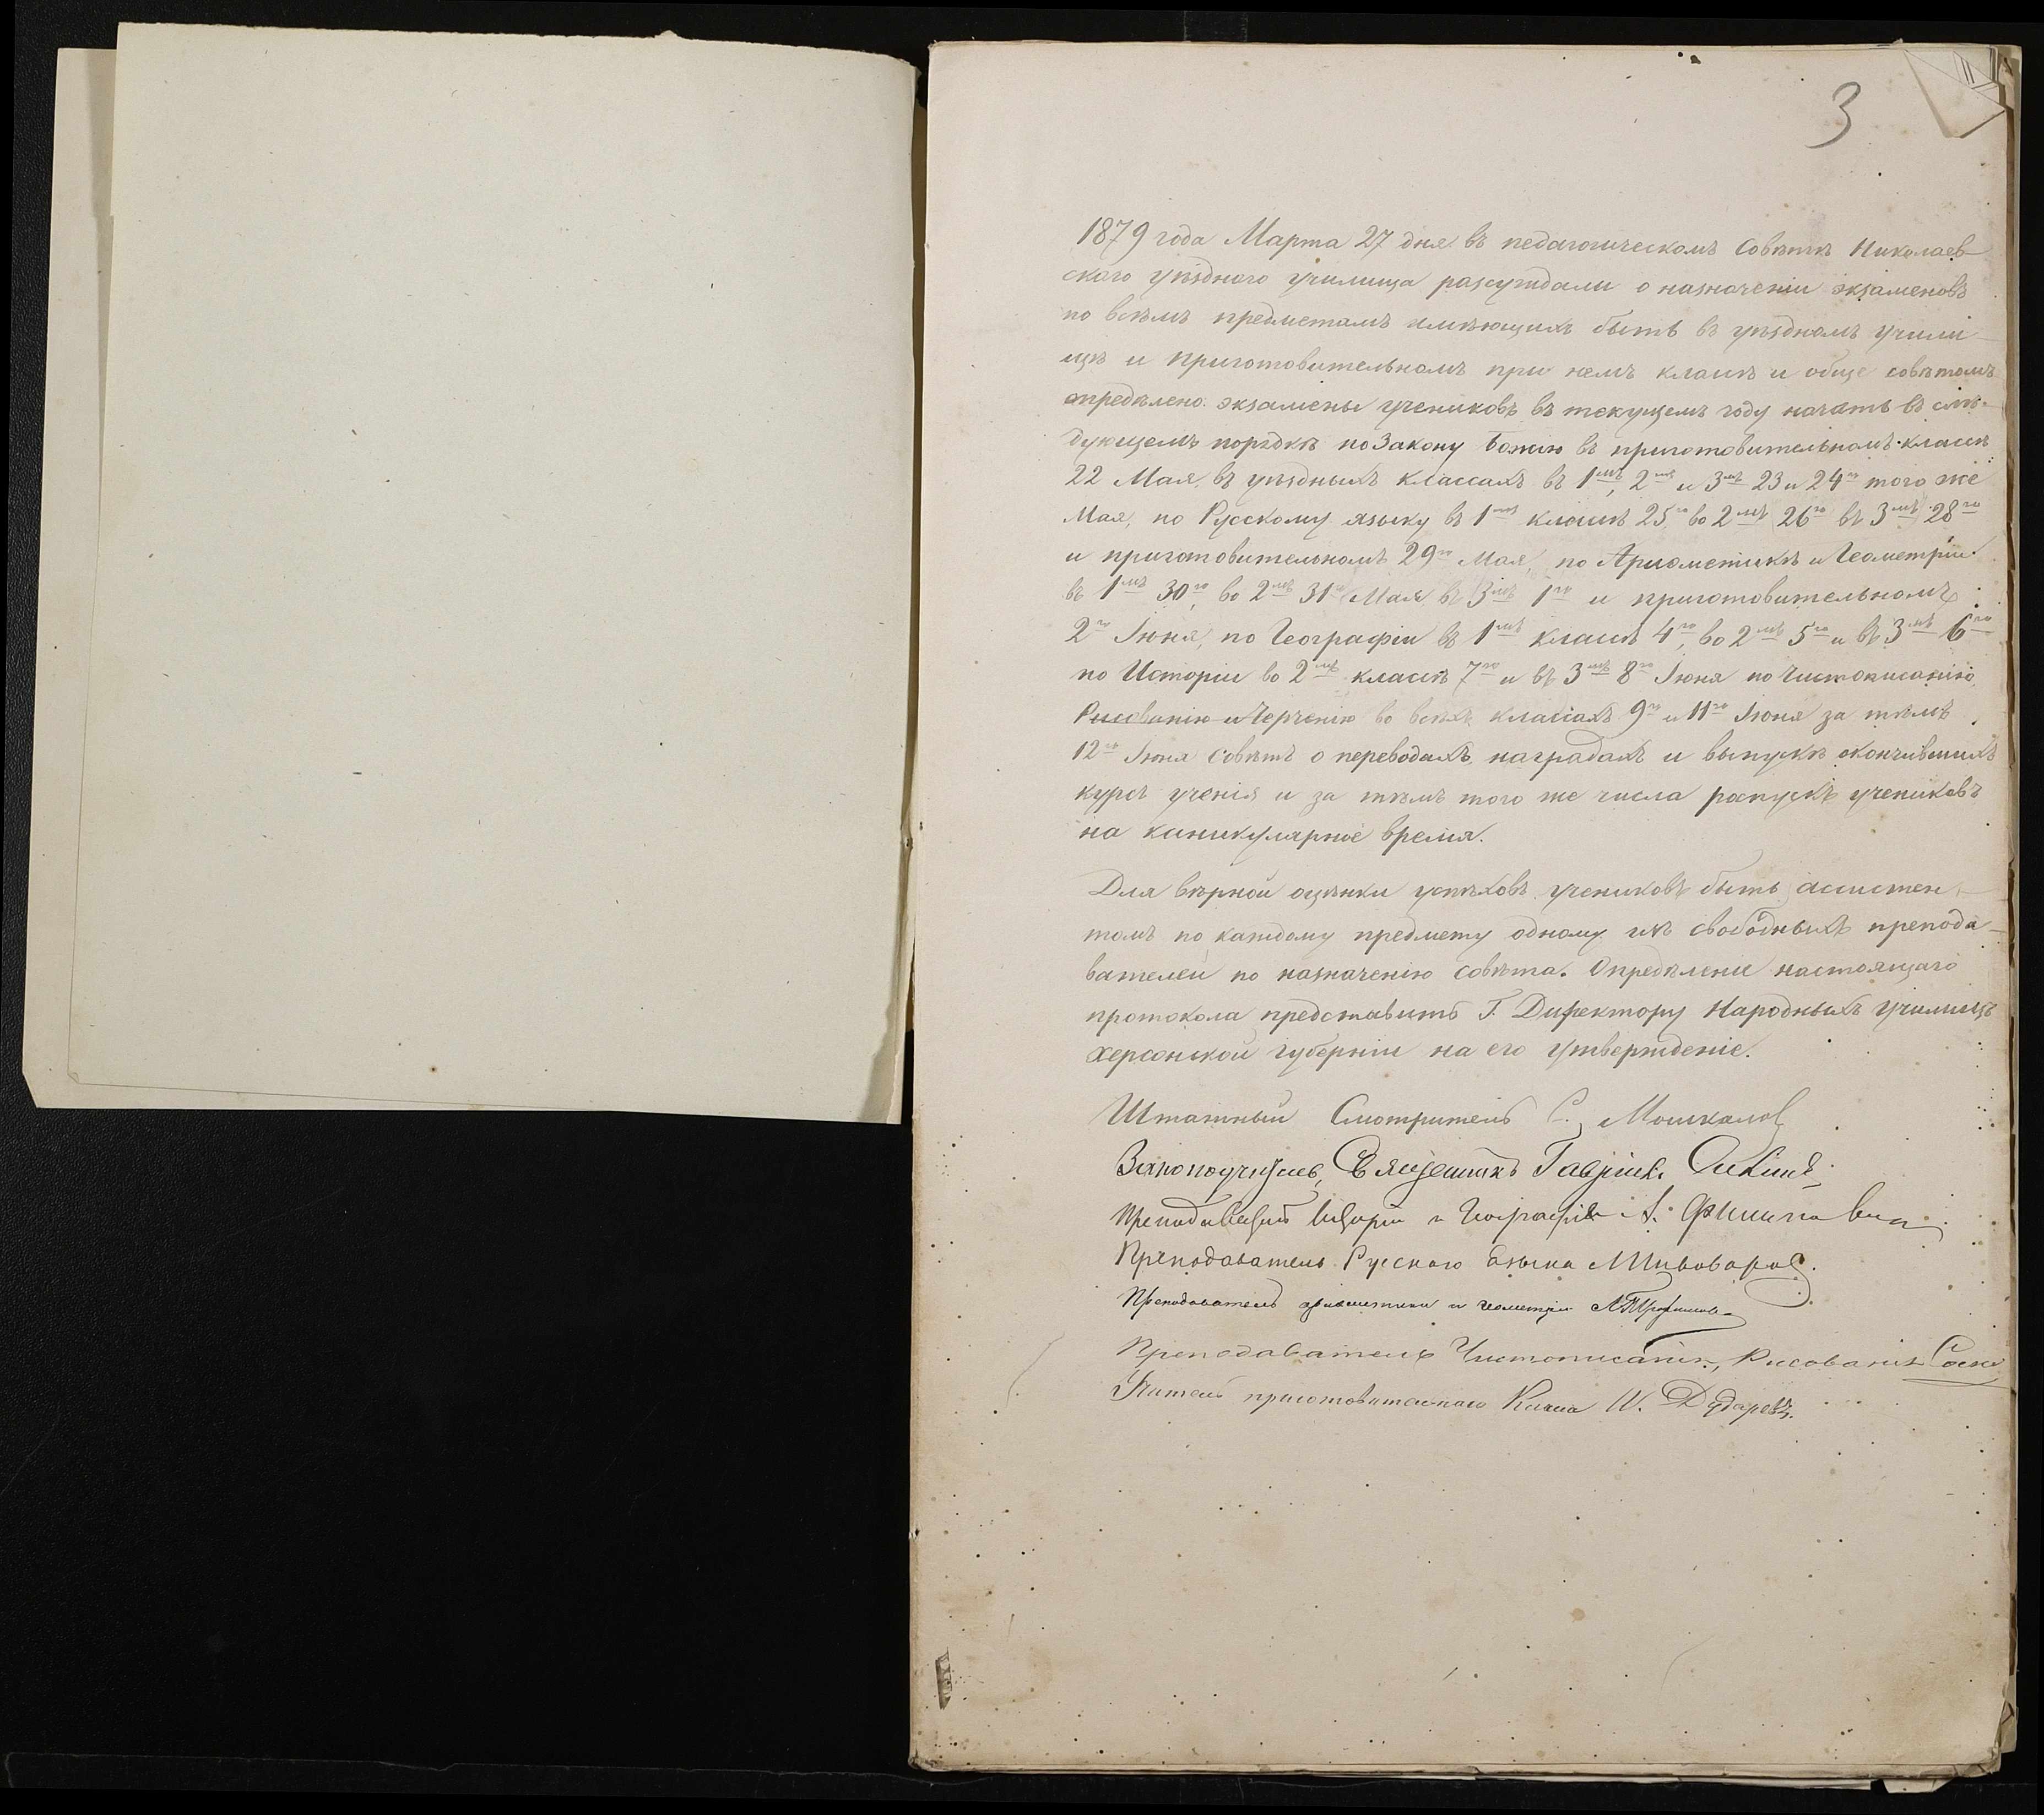 3
1879 года Марта 27 дня въ педагогическомъ Совѣтѣ Николаев-
скаго уѣзднаго училища разсуждали о назначеніи экзаменовъ
по всѣмъ предметамъ имѣющихъ быть въ уѣздномъ учили-
щѣ и приготовительномъ при немъ классѣ и обще совѣтомъ
опредѣлено: экзамены учениковъ въ текущемъ году начать въ слѣ-
дующемъ порядкѣ по Закону Божію въ приготовительномъ классѣ
22 Мая, въ уѣздныхъ классахъ въ 1мъ, 2мъ и 3мъ 23 и 24го того же
Мая, по Русскому языку въ 1мъ классѣ 25го во 2мъ 26го въ 3мъ 28го
и приготовительномъ 29го Мая, по Ариѳметикѣ и Геометріи
въ 1мъ 30го, во 2мъ 31го Мая въ 3мъ 1го и приготовительномъ
2го Іюня, по Географіи въ 1мъ классѣ 4го, во 2мъ 5го и въ 3мъ 6го
по Исторіи во 2мъ классѣ 7го и въ 3мъ 8го Іюня по Чистописанію,
Рисованію и Черченію во всѣхъ классахъ 9го и 11го Іюня за тѣмъ
12го Іюня Совѣтъ о переводахъ, наградахъ и выпускѣ окончившихъ
курсъ ученія и за тѣмъ того же числа роспускъ учениковъ
на каникулярное время.
Для вѣрной оцѣнки успѣховъ учениковъ быть ассистен-
томъ по каждому предмету одному изъ свободныхъ препода-
вателей по назначенію совѣта. Опредѣленіе настоящаго
протокола представить Г. Директору Народныхъ Училищъ
Херсонской губерніи на его утвержденіе.
Штатный Смотритель С. Мошкалов
Законоучитель, Священникъ Гавріилъ
Преподаватель Исторіи и Географіи А.
Преподаватель Русскаго Языка Пивоваров.
Преподаватель ариѳметики и геометріи А. Трофимов
Преподаватель Чистописанія, Рисованія
Учитель приготовительнаго Класса И. Дударевъ.